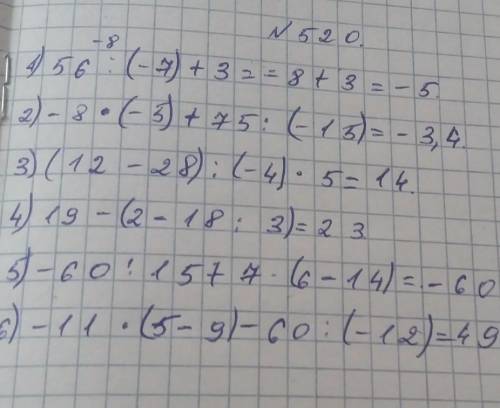 N 520.
-8
1) 56 : (-7) + 3 = = 8 + 3 = - 5.
2) - 8 • (-5) + 75 : (-15) = - 3,4.
3) (12 - 28) : (-4) • 5 = 14.
4) 19 - (2 - 18 : 3) = 23
5) - 60 : 15 + 7 • (6 - 14) = - 60
6) - 11 • (5 - 9) - 60 : (-12) = 49